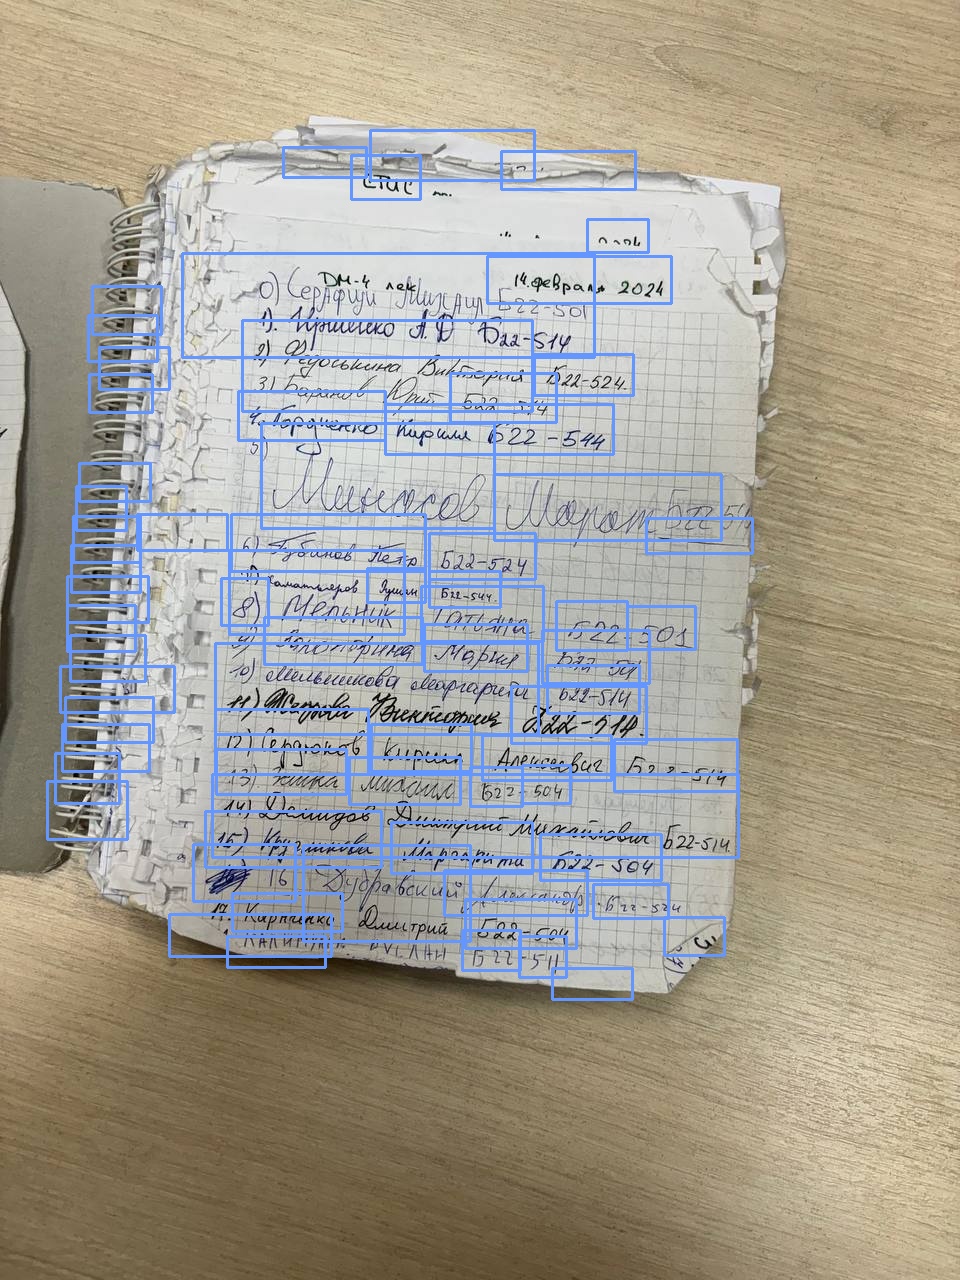 СТИС
2024
DM-4 лек 14 февраля 2024
0) Серафим Михаил Б22-501
1). А.D Б22-514
2) Федоськина Виктория Б22-524.
3) Баранов Юрий Б22-514
4. Гордиенко Кирилл Б22-544
5)
Минасов Марат Б22-514
6) Губинов Петр Б22-524
7) Рушан Б22-544.
8) Мельник Татьяна Б22-501
9) Мария Б22-514
10) Мельникова Маргарита Б22-514
11) Виктория Б22-514.
12) Сердюков Кирилл Алексеевич Б22-514
13) Михаил Б22-504
14) Демидов Дмитрий Михайлович Б22-514
15) Кругликова Маргарита Б22-504
16 Дубравский Александр. Б22-524
17. Кириченко Дмитрий Б22-504
Руслан Б22-511